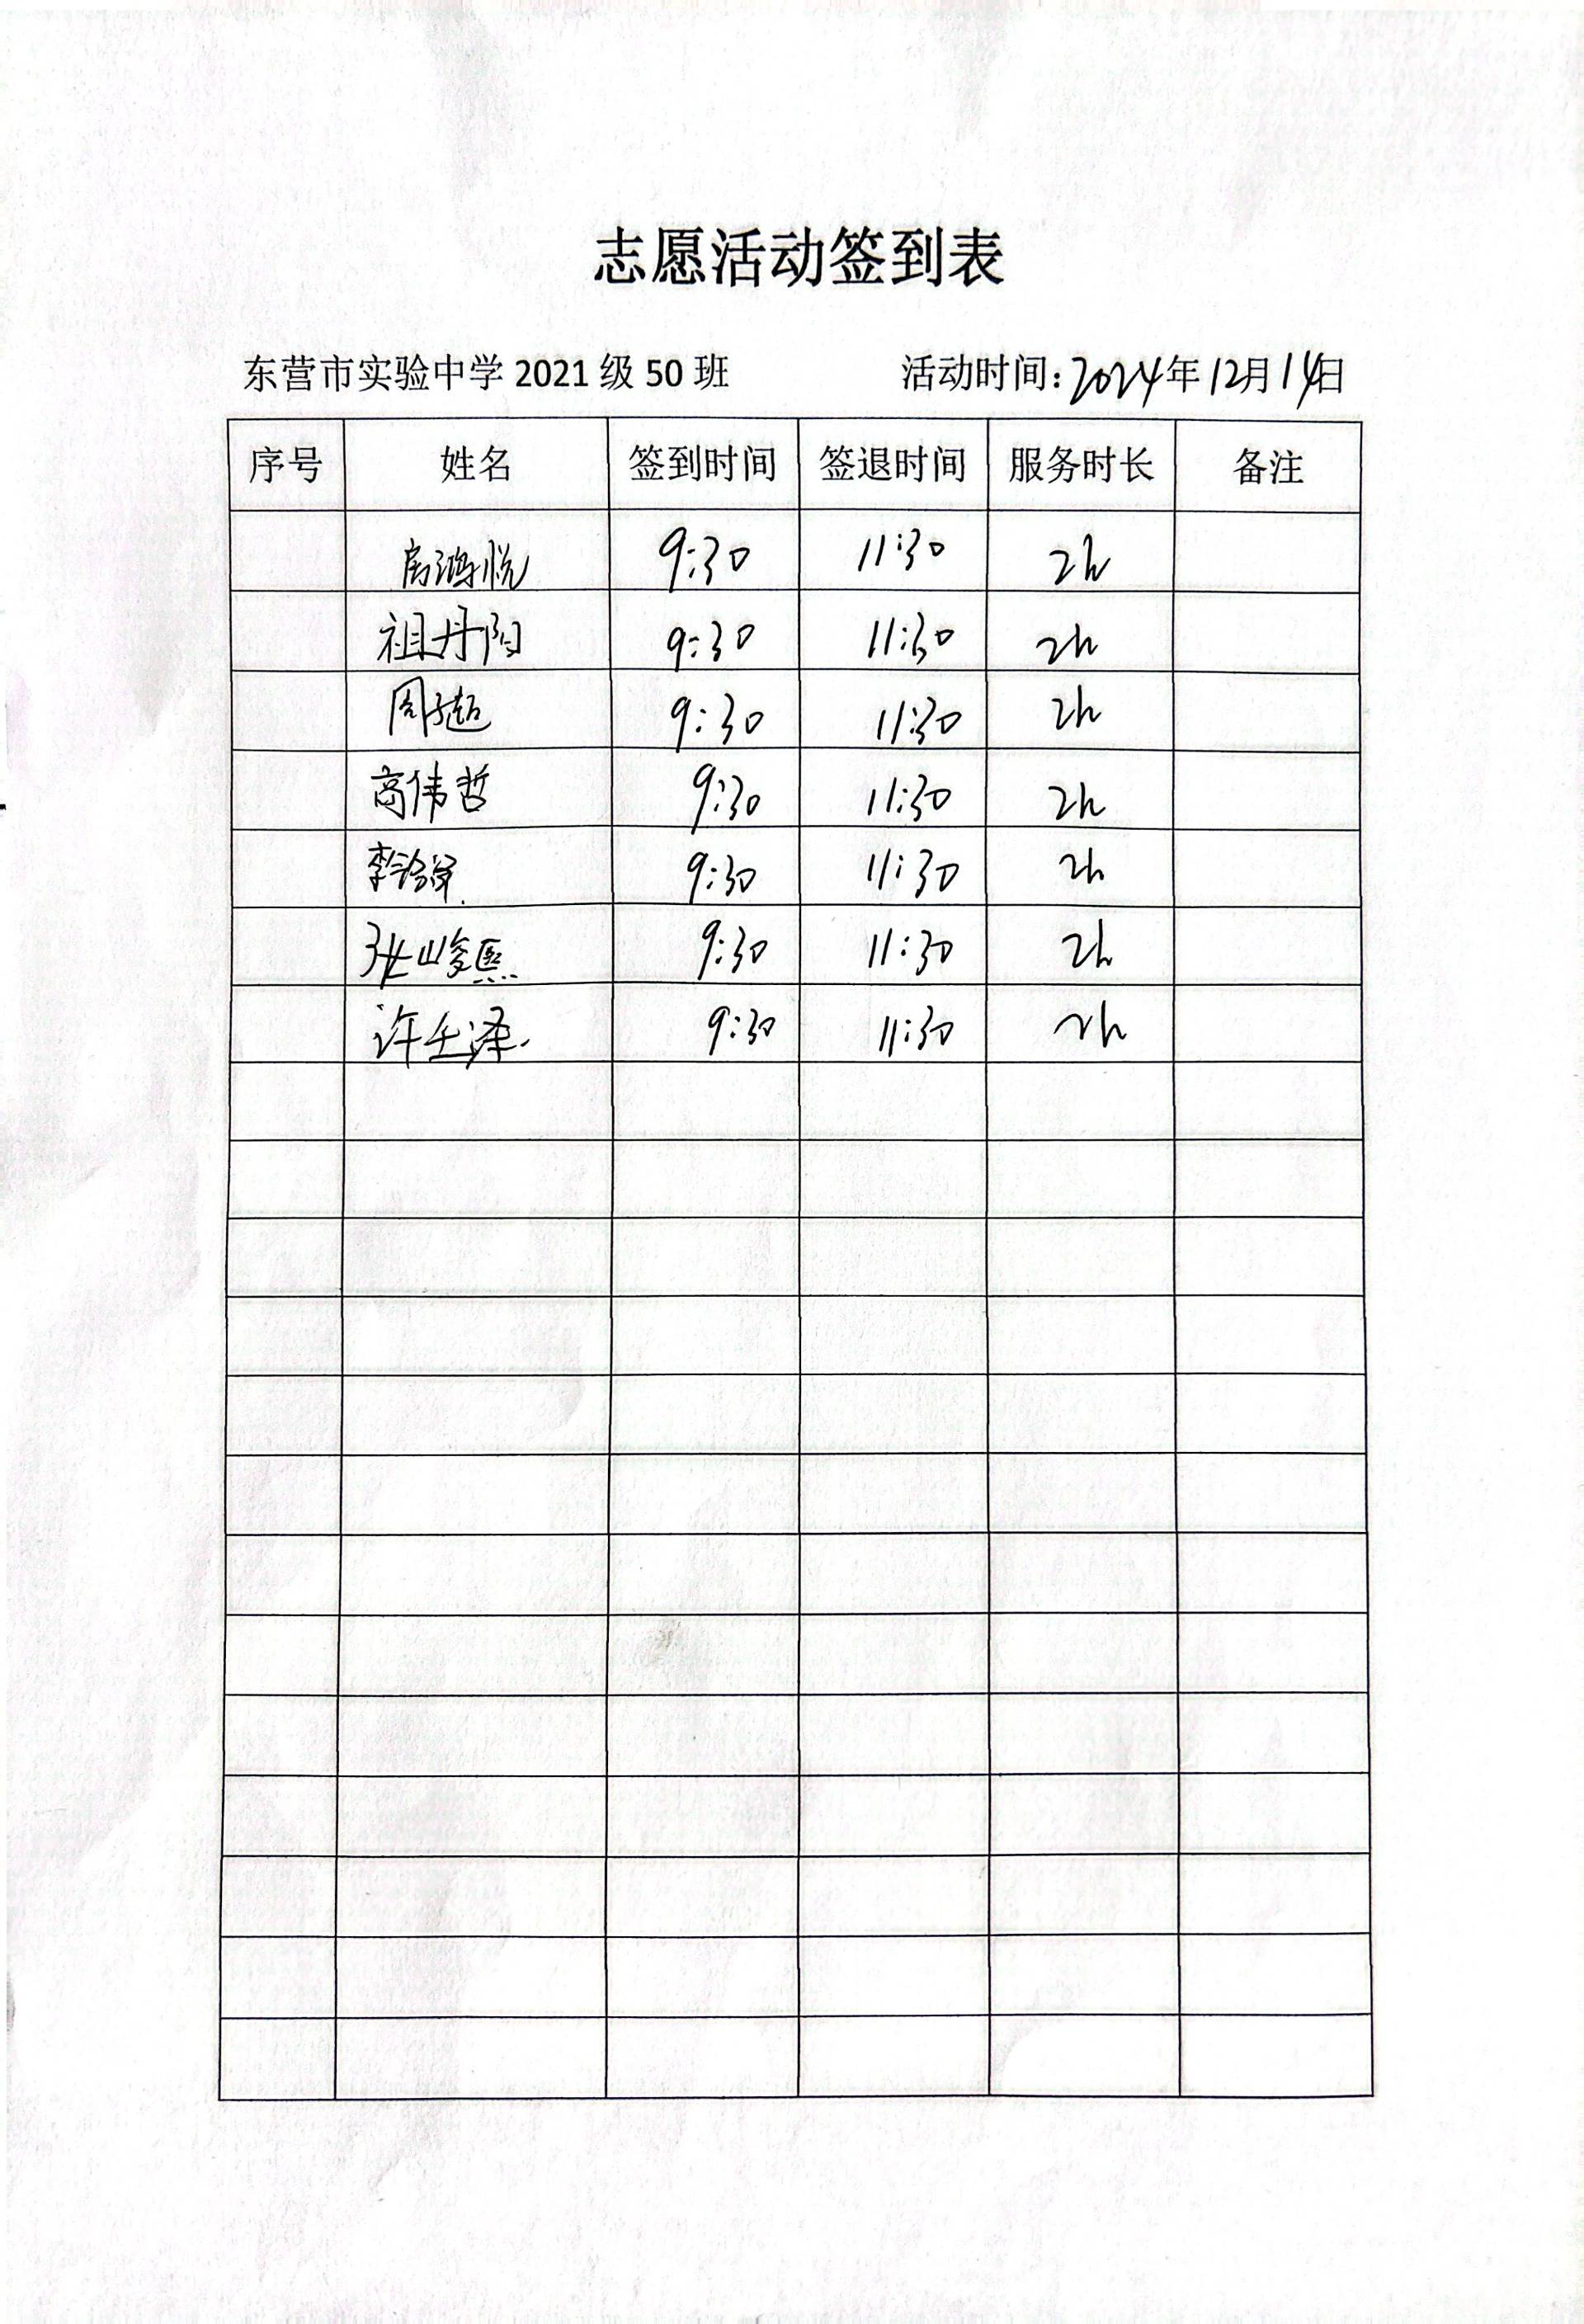 志愿活动签到表
东营市实验中学 2021 级 50 班 活动时间: 2024年12月14日
序号 姓名 签到时间 签退时间 服务时长 备注
房鸿悦 9:30 11:30 2h
祖丹阳 9:30 11:30 2h
周子超 9:30 11:30 2h
高伟哲 9:30 11:30 2h
李 9:30 11:30 2h
张峻熙 9:30 11:30 2h
许壬泽 9:30 11:30 2h